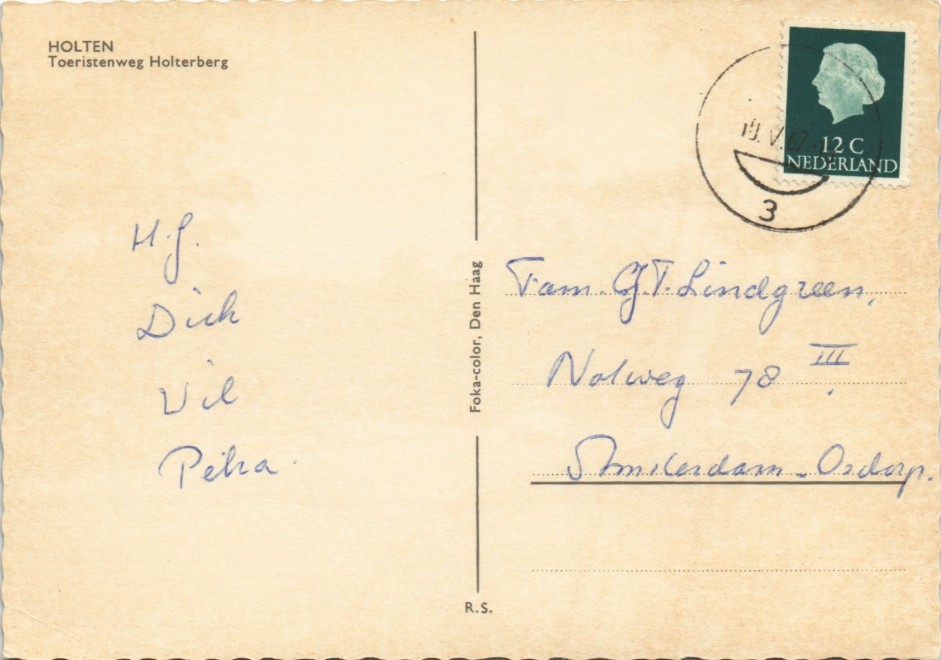 HOLTEN
Toeristenweg Holterberg
12 C
NEDERLAND
3
H.G.
Dick
Wil
Petra.
Foka-color, Den Haag
Fam. G.T. Lindgreen,
Nolweg 78 III.
Amsterdam-Osdorp.
R.S.